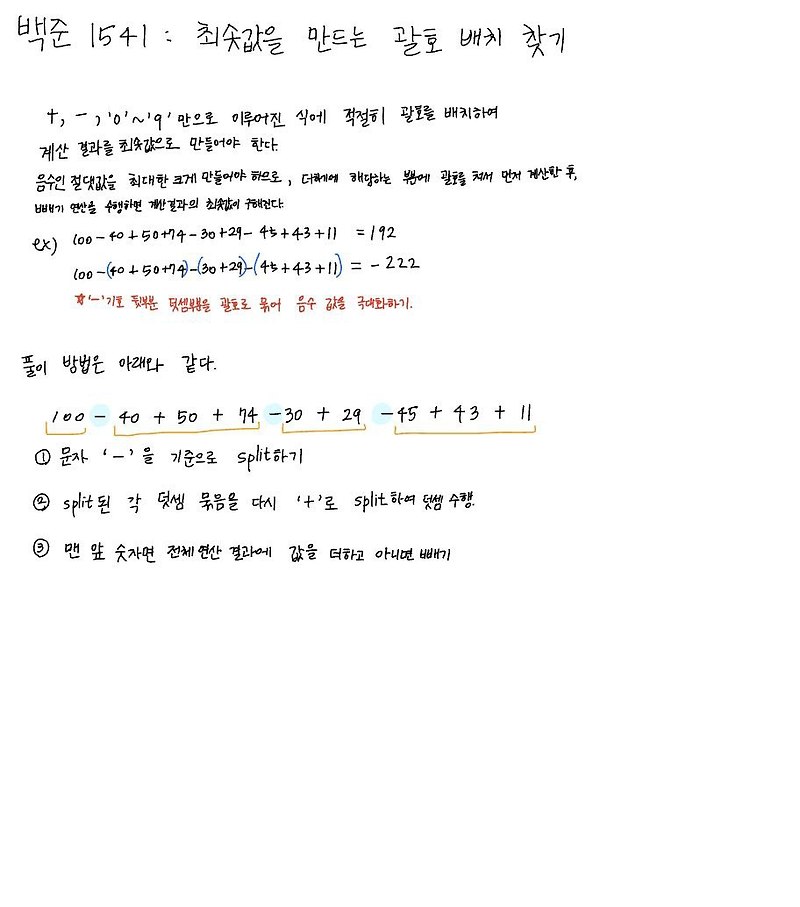 백준 1541 : 최솟값을 만드는 괄호 배치 찾기
+, -, '0'~'9' 만으로 이루어진 식에 적절히 괄호를 배치하여
계산 결과를 최솟값으로 만들어야 한다.
음수인 절댓값을 최대한 크게 만들어야 하므로, 더하기에 해당하는 부분에 괄호를 쳐서 먼저 계산한 후,
빼기 연산을 수행하면 계산결과의 최솟값이 구해진다.
ex) 100-40+50+74-30+29-45+43+11 =192
100-(40+50+74)-(30+29)-(45+43+11) = -222
☆'-'기호 뒷부분 덧셈부분을 괄호로 묶어 음수 값을 극대화하기.
풀이 방법은 아래와 같다.
100 - 40 + 50 + 74 - 30 + 29 - 45 + 43 + 11
① 문자 '-'을 기준으로 split하기
② split된 각 덧셈 묶음을 다시 '+'로 split하여 덧셈 수행.
③ 맨 앞 숫자면 전체 연산 결과에 값을 더하고 아니면 빼기